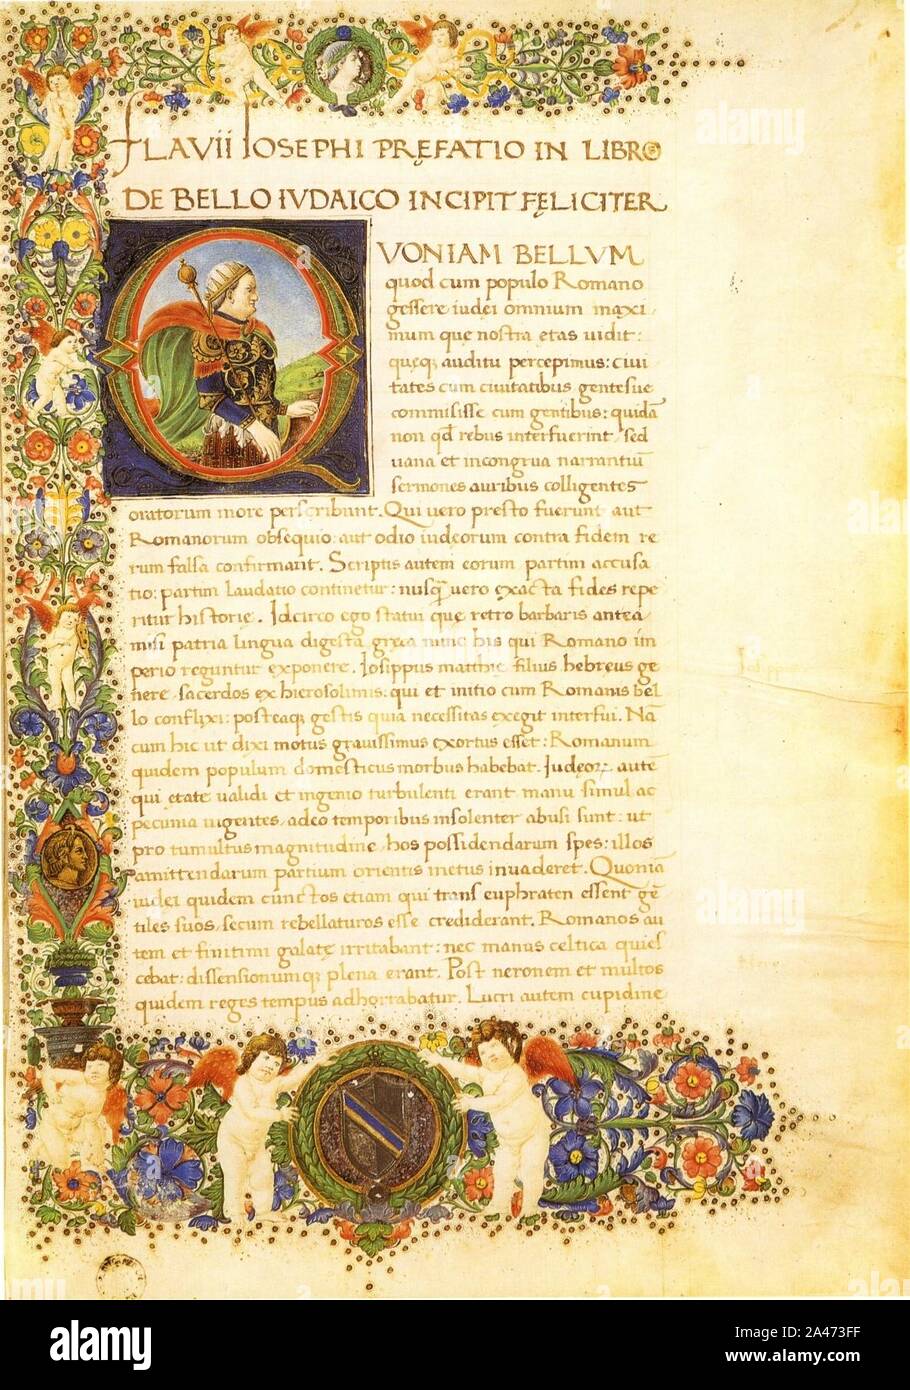 FLAVII IOSEPHI PRĘFATIO IN LIBRO
DE BELLO IVDAICO INCIPIT FĘLICITER
QVONIAM BELLVM
quod cum populo Romano
gessere iudei omnium maxi
mum que nostra etas uidit:
quęq; auditu percepimus: ciui
tates cum ciuitatibus gentesue
commisisse cum gentibus: quidā
non qd rebus interfuerint, sed
uana et incongrua narrantiū
sermones auribus colligentes
oratorum more perscribunt. Qui uero presto fuerunt aut
Romanorum obsequio: aut odio iudęorum contra fidem re
rum falsa confirmant. Scriptis autem eorum partim accusa
tio: partim laudatio continetur: nusq̄ uero exacta fides repe
ritur historie. Idcirco ego statui que retro barbaris antea
misi patria lingua digesta gręca nunc his qui Romano im
perio reguntur exponere. Iosippus matthię filius hebręus ge
nere, sacerdos ex hierosolimis: qui et initio cum Romanis bel
lo conflixi: posteaq; gestis quia necessitas exegit interfui. Nā
cum hic ut dixi motus grauissimus exortus esset: Romanum
quidem populum domesticus morbus habebat. Iudęorꝝ autē
qui ętate ualidi et ingenio turbulenti erant manu simul ac
pecunia uigentes, adeo temporibus insolenter abusi sunt: ut
pro tumultus magnitudine, hos possidendarum spes: illos
amittendarum partium orientis metus inuaderet. Quoniā
iudei quidem cunctos etiam qui trans euphraten essent gē
tiles suos, secum rebellaturos esse crediderant. Romanos au
tem et finitimi galatę irritabant: nec manus celtica quies
cebat: dissensionumq; plena erant. Post neronem et multos
quidem reges tempus adhortabatur. Lucri autem cupidine
alamy
Image ID: 2A473FF
www.alamy.com